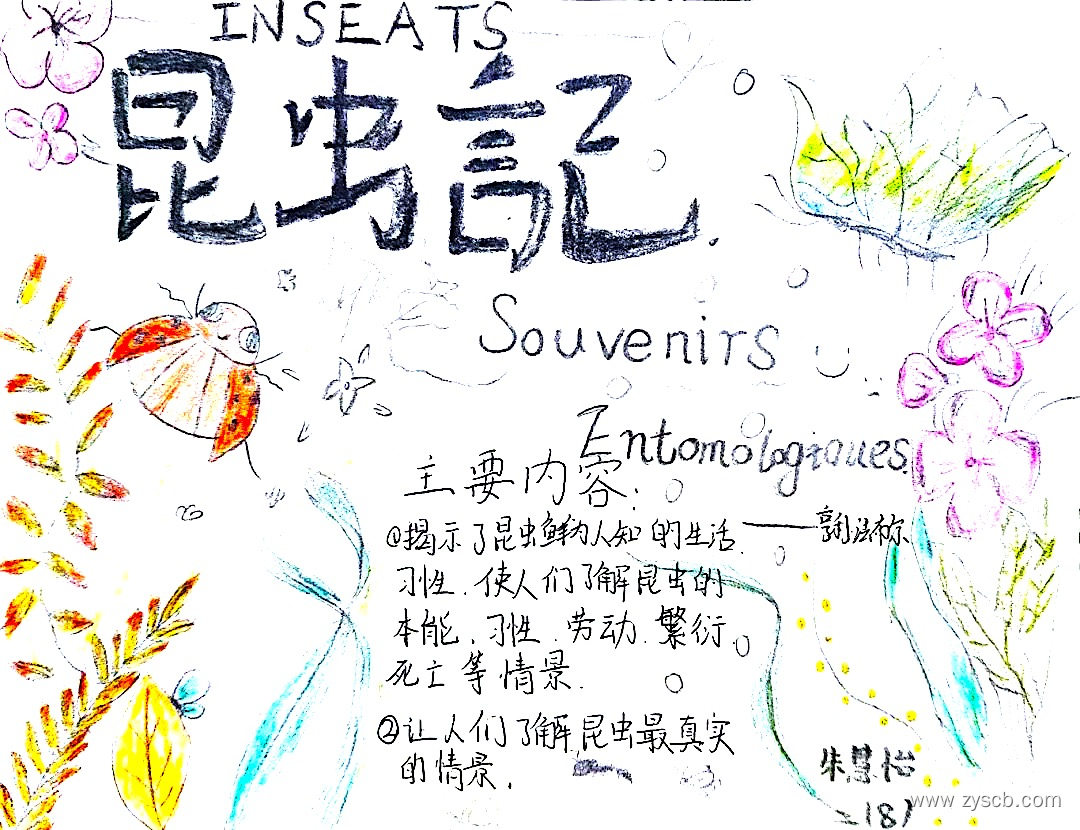 INSEATS
昆虫記
Souvenirs
Entomologiques
主要内容:
①揭示了昆虫鲜为人知的生活
习性.使人们了解昆虫的
本能.习性.劳动.繁衍
死亡等情景.
②让人们了解昆虫最真实
的情景.
朱慧怡
二(8)
www.zyscb.com